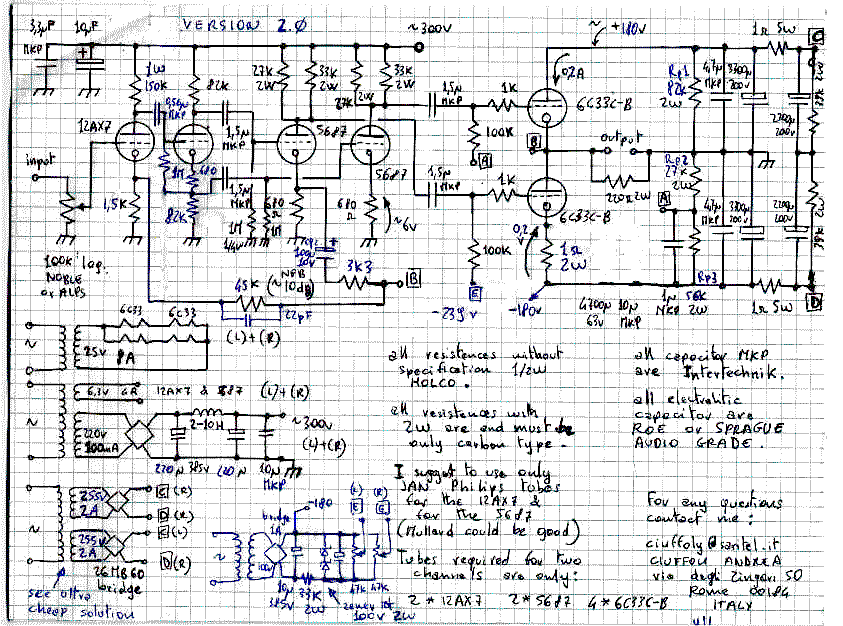 VERSION 2.0
3,3µF
MKP
10µF
~300V
~ +180V
1Ω 5W
C
1W
150K
82K
27K
2W
33K
2W
27K
33K
2W
1,5µ
MKP
1K
0,2A
6C33C-B
Rp1
82K
2W
4,7µ
MKP
3300µ
200V
2200µ
200V
39K 2W
12AX7
1,5µ
MKP
5687
5687
100K
A
B
output
input
1,5K
1M
680
82K
1,5µ
MKP
1M
1/4W
680
Ω
1M
680
Ω
~6V
1,5µ
MKP
1K
6C33C-B
220Ω 2W
Rp2
27K
2W
A
4,7µ
MKP
3300µ
200V
2200µ
200V
39K 2W
100K log.
NOBLE
or ALPS
100µ
10V
3K3
B
100K
E
0,2
V
1Ω
2W
Rp3
1Ω 5W
D
45K
NFB
(~10dB)
22pF
(L)+(R)
-239V
-180V
4700µ
63V
10µ
MKP
1µ
MKP
56K
2W
6C33
6C33
25V
8A
6,3V 6A
12AX7 & 5687
(L)+(R)
220V
100mA
2-10H
~300V
(L)+(R)
220µ 385V
220µ
10µ
MKP
255V
2A
C (R)
D (R)
255V
2A
C (L)
D (R)
26MB60
bridge
see ultra
cheap solution
bridge
1A
-180
(L)
(R)
E
E
10µ
385V
33K
2W
47K
47K
100V 2W
all resistences without
specification 1/2W
HOLCO.
all resistences with
2W are and must be
only carbon type.
I suggest to use only
JAN Philips tubes
for the 12AX7 &
for the 5687
(Mullard could be good)
Tubes required for two
channels are only:
2*12AX7 2*5687 4*6C33C-B
all capacitor MKP
are Intertechnik.
all electrolitic
capacitor are
ROE or SPRAGUE
AUDIO GRADE.
For any questions
contact me:
ciuffoly@santel.it
CIUFFOLI ANDREA
via degli Zingari 50
Rome 00184
ITALY